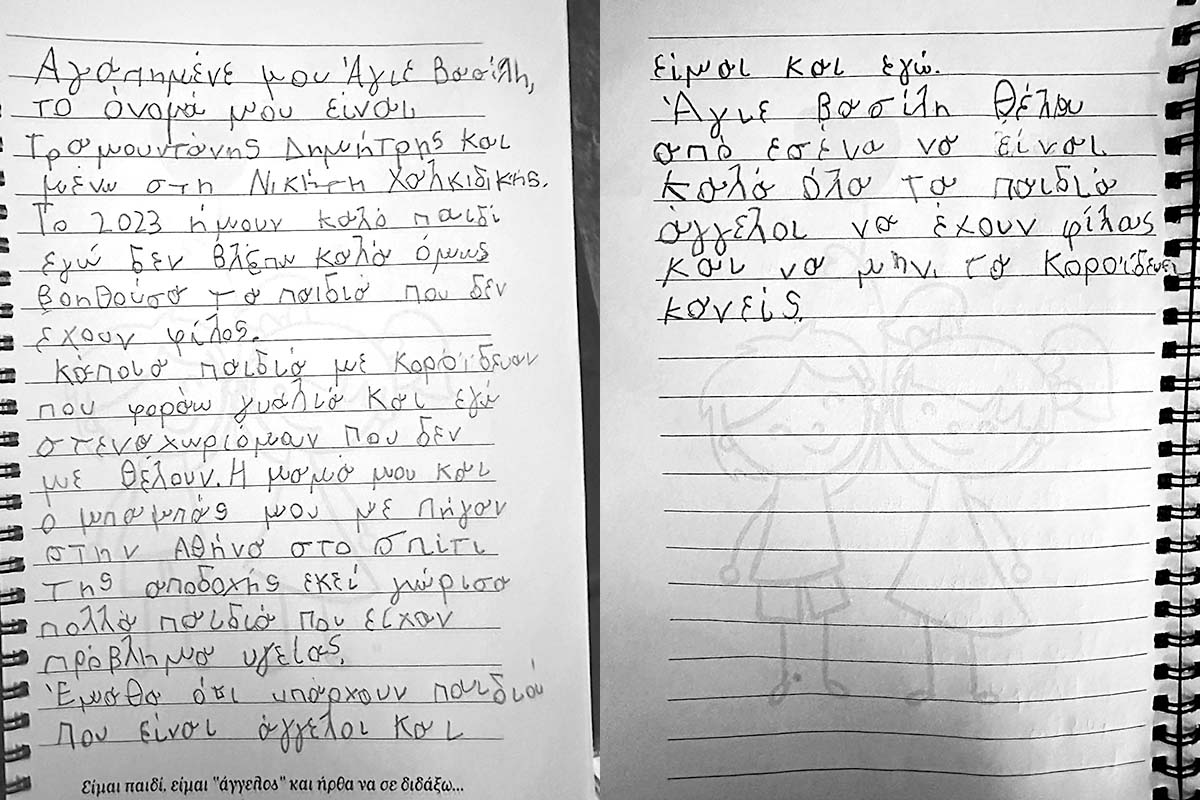 Αγαπημένε μου Άγιε Βασίλη,
το όνομά μου είναι
Τραμουντάνης Δημήτρης και
μένω στη Νικήτη Χαλκιδικής.
Το 2023 ήμουν καλό παιδί
εγώ δεν βλέπω καλά όμως
βοηθούσα τα παιδιά που δεν
έχουν φίλος.
Κάποια παιδιά με κοροϊδευαν
που φοράω γυαλιά και εγώ
στεναχωριόμαν που δεν
με θέλουν. Η μαμά μου και
ο μπαμπάς μου με πήγαν
στην Αθήνα στο σπίτι
της αποδοχής εκεί γώρισα
πολλά παιδιά που είχαν
πρόβλημα υγείας.
Έμαθα ότι υπάρχουν παιδιά
που είναι άγγελοι και
Είμαι παιδί, είμαι "άγγελος" και ήρθα να σε διδάξω...
είμαι και εγώ.
Άγιε Βασίλη θέλω
από εσένα να είναι
καλά όλα τα παιδιά
άγγελοι να έχουν φίλους
και να μην τα κοροϊδευει
κανείς.